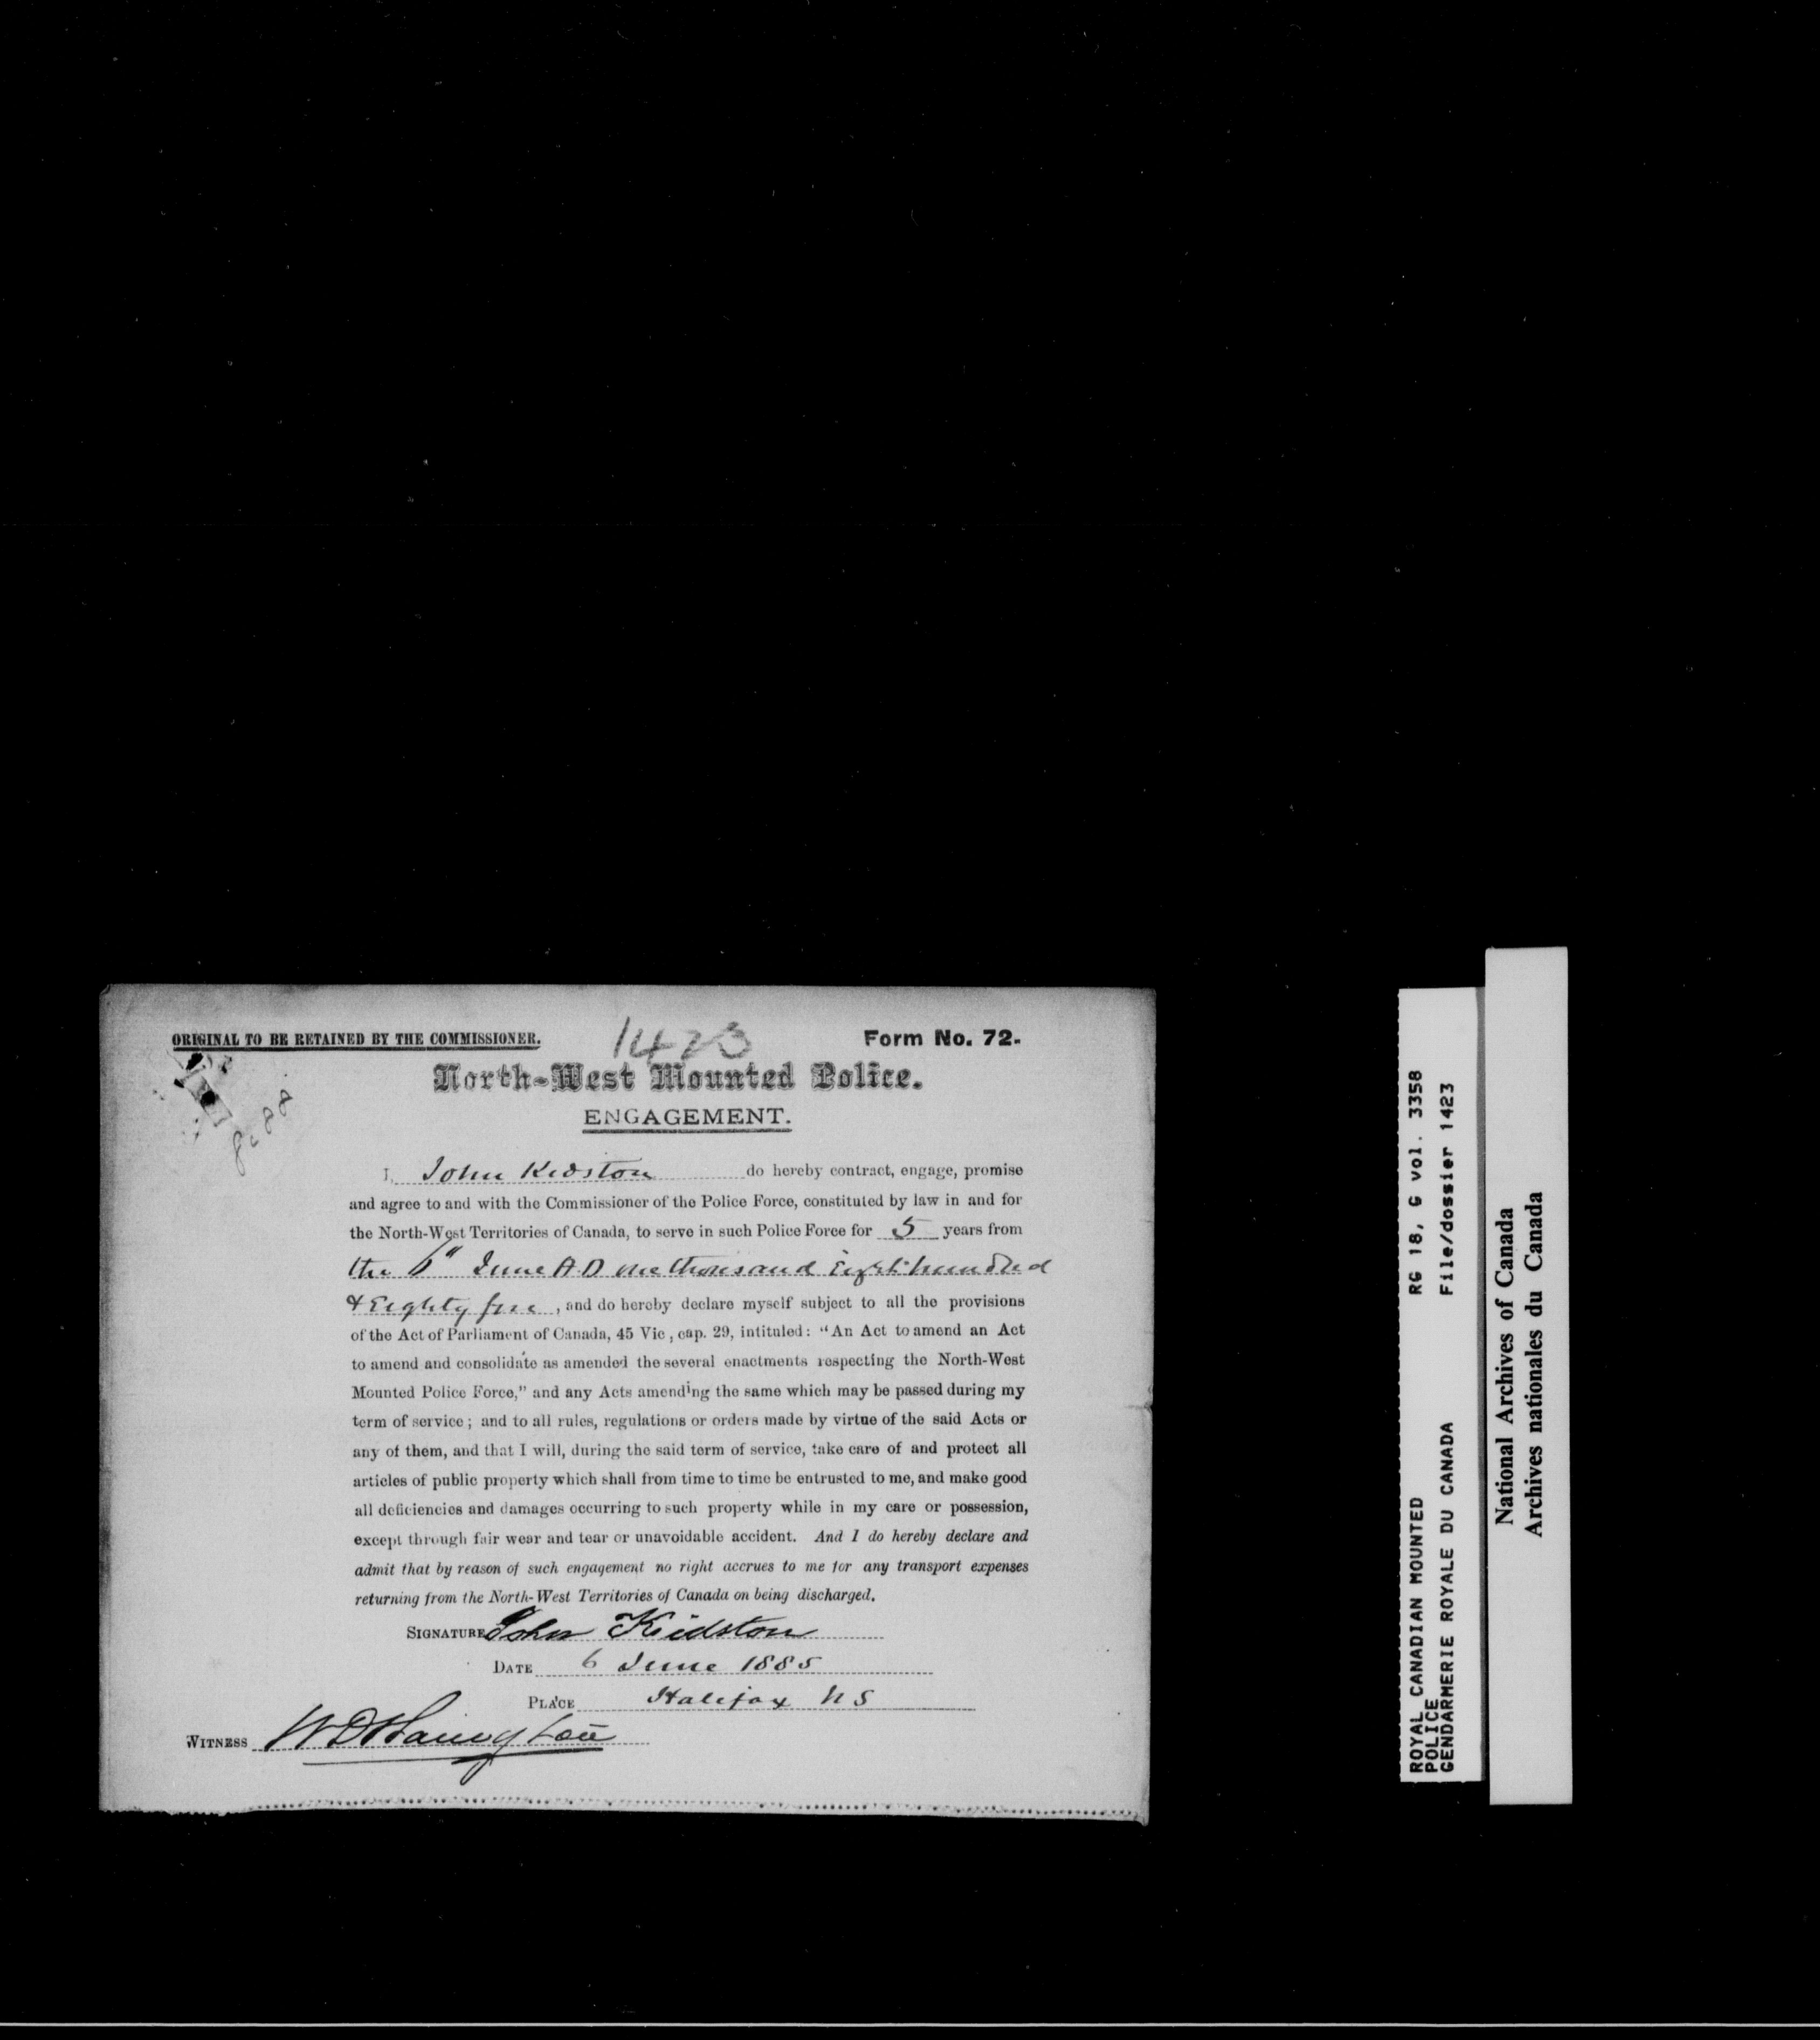 ORIGINAL TO BE RETAINED BY THE COMMISSIONER.
1423
Form No. 72.
North-West Mounted Police.
ENGAGEMENT.
I, John Kidston do hereby contract, engage, promise
and agree to and with the Commissioner of the Police Force, constituted by law in and for
the North-West Territories of Canada, to serve in such Police Force for 5 years from
the 6" June A D one thousand Eight hundred
& Eighty five, and do hereby declare myself subject to all the provisions
of the Act of Parliament of Canada, 45 Vic, cap. 29, intituled: "An Act to amend an Act
to amend and consolidate as amended the several enactments respecting the North-West
Mounted Police Force," and any Acts amending the same which may be passed during my
term of service; and to all rules, regulations or orders made by virtue of the said Acts or
any of them, and that I will, during the said term of service, take care of and protect all
articles of public property which shall from time to time be entrusted to me, and make good
all deficiencies and damages occurring to such property while in my care or possession,
except through fair wear and tear or unavoidable accident. And I do hereby declare and
admit that by reason of such engagement no right accrues to me for any transport expenses
returning from the North-West Territories of Canada on being discharged.
SIGNATURE John Kidston
DATE 6 June 1885
PLACE Halifax NS
WITNESS
ROYAL CANADIAN MOUNTED RG 18, G vol. 3358
POLICE
GENDARMERIE ROYALE DU CANADA File/dossier 1423
National Archives of Canada
Archives nationales du Canada